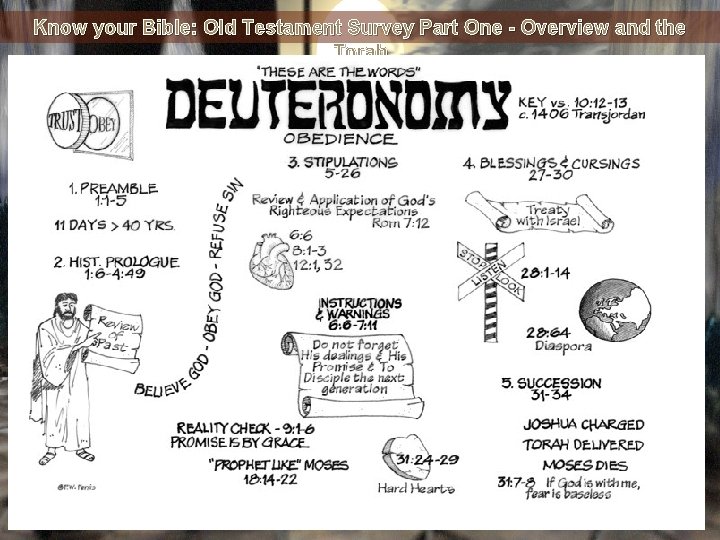 Know your Bible: Old Testament Survey Part One - Overview and the
Torah
"THESE ARE THE WORDS"
DEUTERONOMY
OBEDIENCE
KEY vs. 10:12-13
c. 1406 Transjordan
TRUST OBEY
1. PREAMBLE
1:1-5
11 DAYS > 40 YRS.
2. HIST. PROLOGUE
1:6-4:49
Review
of
Past
BELIEVE GOD - OBEY GOD - REFUSE SIN
3. STIPULATIONS
5-26
Review & Application of God's
Righteous Expectations
Rom 7:12
6:6
8:1-3
12:1, 32
INSTRUCTIONS
& WARNINGS
6:6-7:11
Do not forget
His dealings & His
Promise & To
Disciple the next
generation
REALITY CHECK - 9:1-6
PROMISE IS BY GRACE
"PROPHET LIKE" MOSES
18:14-22
31:24-29
Hard Hearts
4. BLESSINGS & CURSINGS
27-30
Treaty
with Israel
STOP
LOOK
LISTEN
28:1-14
28:64
Diaspora
5. SUCCESSION
31-34
JOSHUA CHARGED
TORAH DELIVERED
MOSES DIES
31:7-8 If God is with me,
fear is baseless